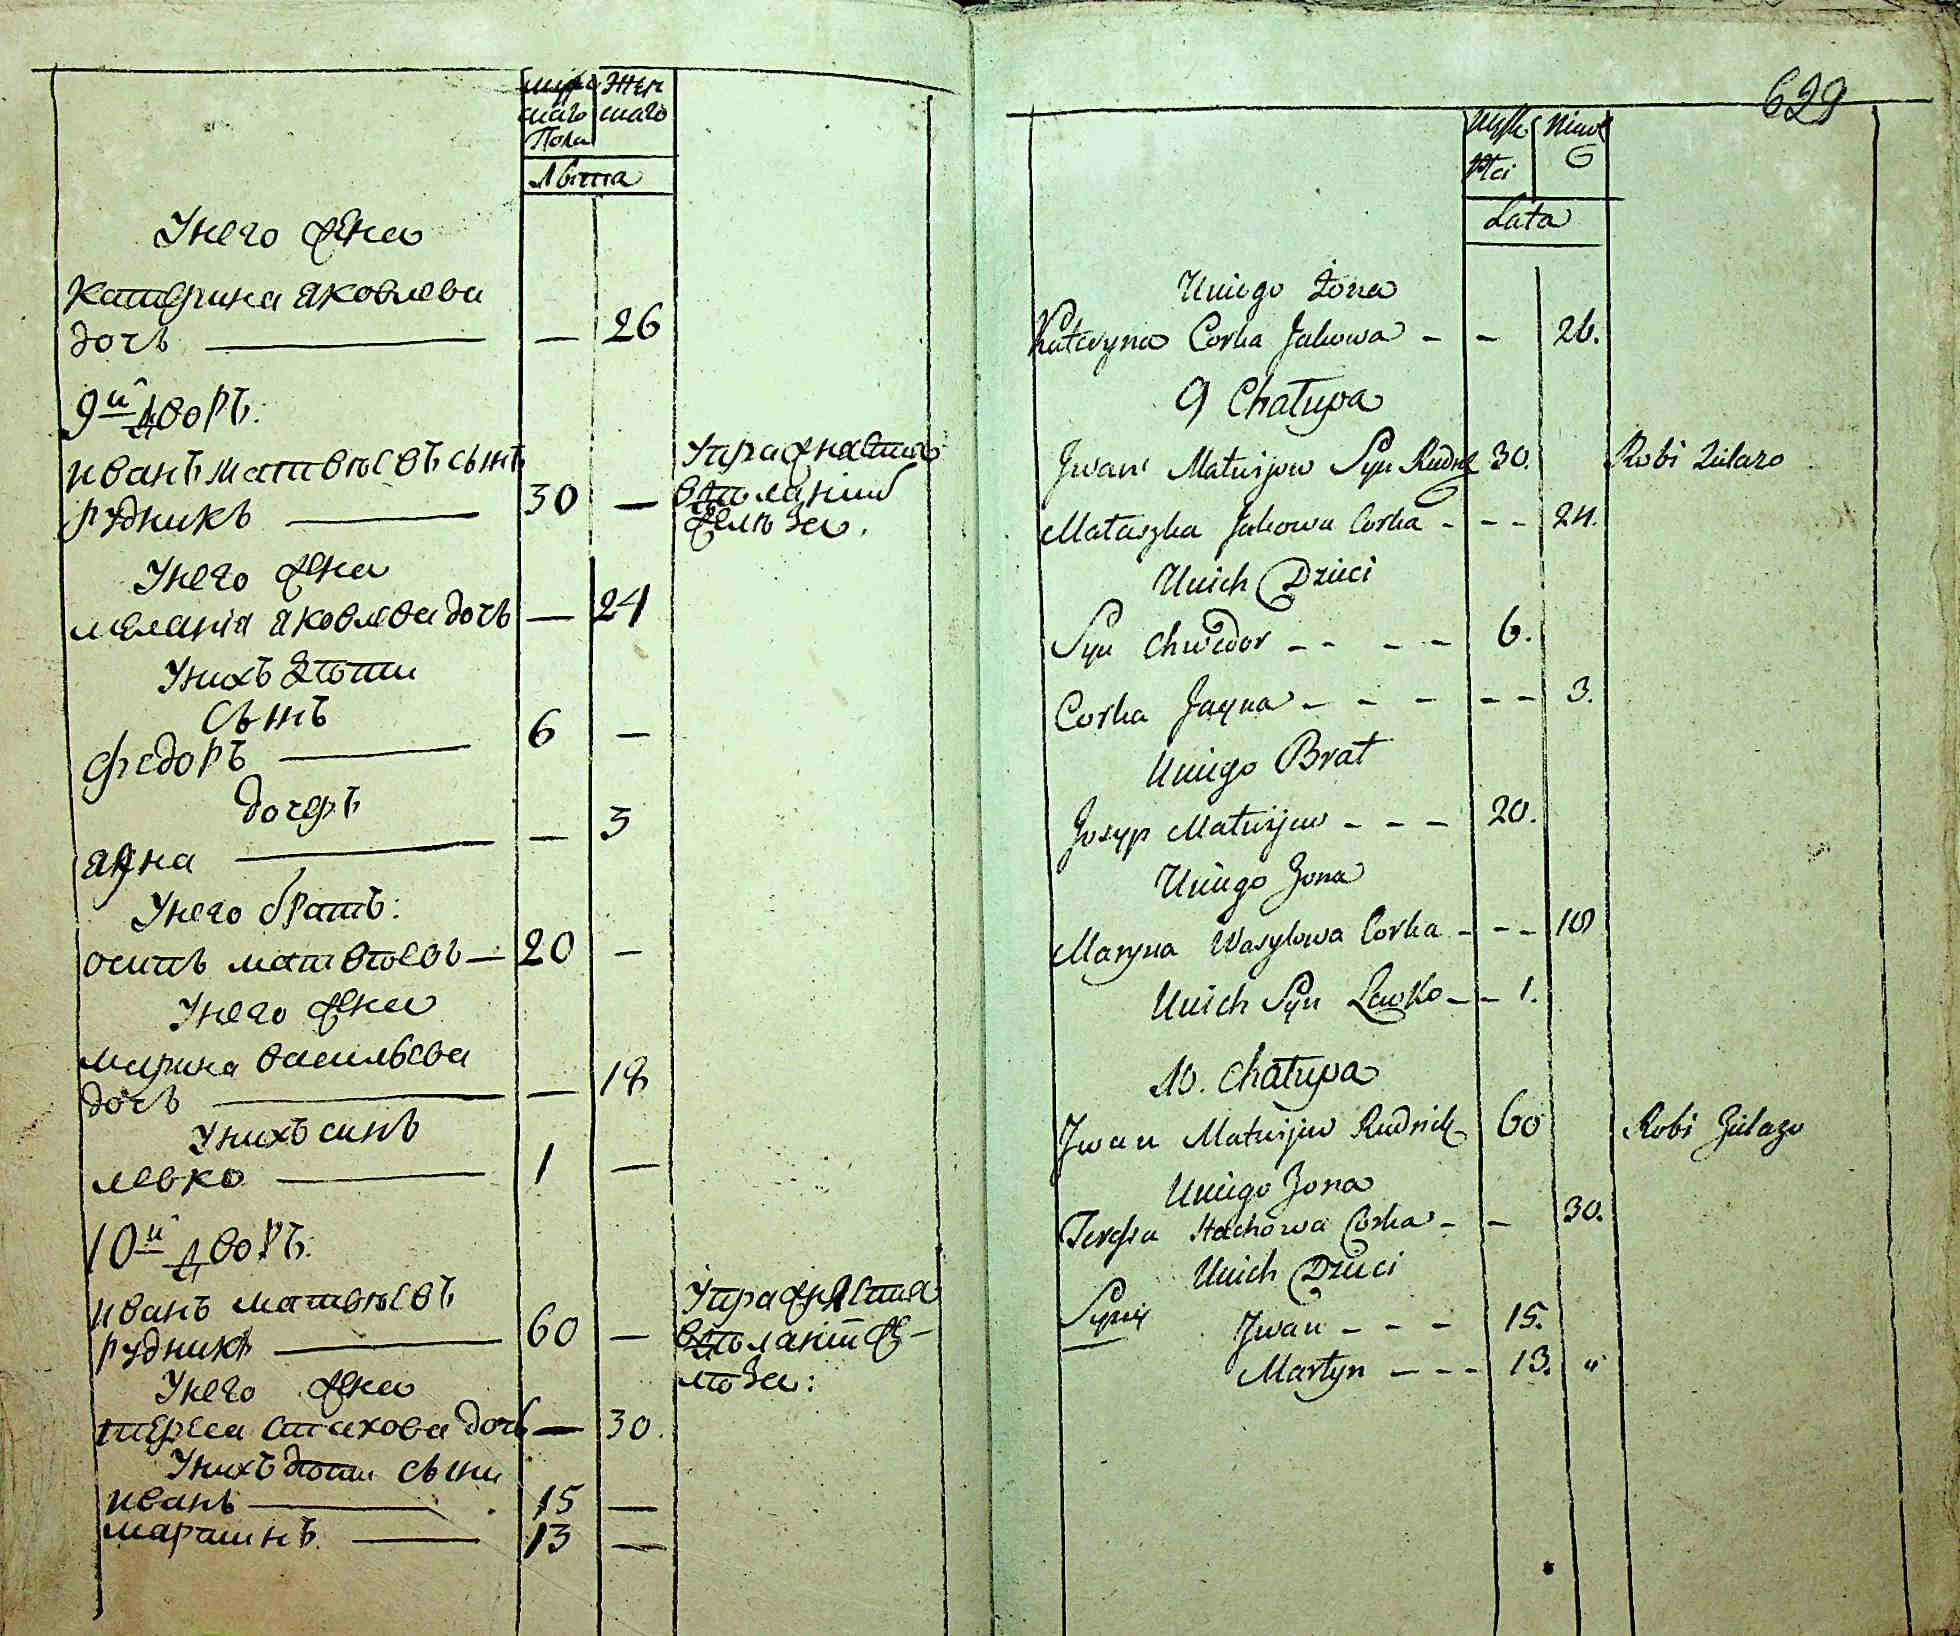 мужс Жен
каго скаго
Пола
Лѣта
У него жена
катерина яковлева
дочь — — 26
9й дворъ:
иванъ матвѣевъ сынъ
рудникъ — 30 —
упражнѣется
въ поланіи
желѣза.
У него жена
меланія яковлева дочь — 24
У нихъ дѣти
сынъ
федоръ — 6 —
дочерь
ягна — — 3
У него братъ:
осипъ матвѣевъ — 20 —
У него жена
марина васильева
дочь — — 18
У нихъ синъ
левко — 1 —
10й дворъ:
иванъ матвѣевъ
рудникъ — 60 —
упражнѣется
въ поланіи же-
лѣза:
У него жена
тереса стахова дочь — 30.
У нихъ дѣти сыни
иванъ — 15 —
мартинъ. — 13 —
629
Męsk Niewi
kei G
Lata
U niego Żona
Kataryna Corka Jakowa - - 26.
9 Chałupa
Jwan Matwijew Syn Rudnik 30. Robi Żielazo
Małaszka Jakowa Corka - - - 24.
U nich Dzieci
Syn Chwedor - - - - 6.
Corka Jagna - - - - - 3.
U niego Brat
Josyp Matwijew - - - 20.
U niego Zona
Maryna Wasylowa Corka - - - 18
U nich Syn Lewko - - 1.
10. Chałupa
Jwan Matwijew Rudnik 60 Robi Żielazo
U niego Zona
Teressa Stachowa Corka - - 30.
U nich Dzieci
Syny Jwan - - - 15.
Martyn - - - 13. "